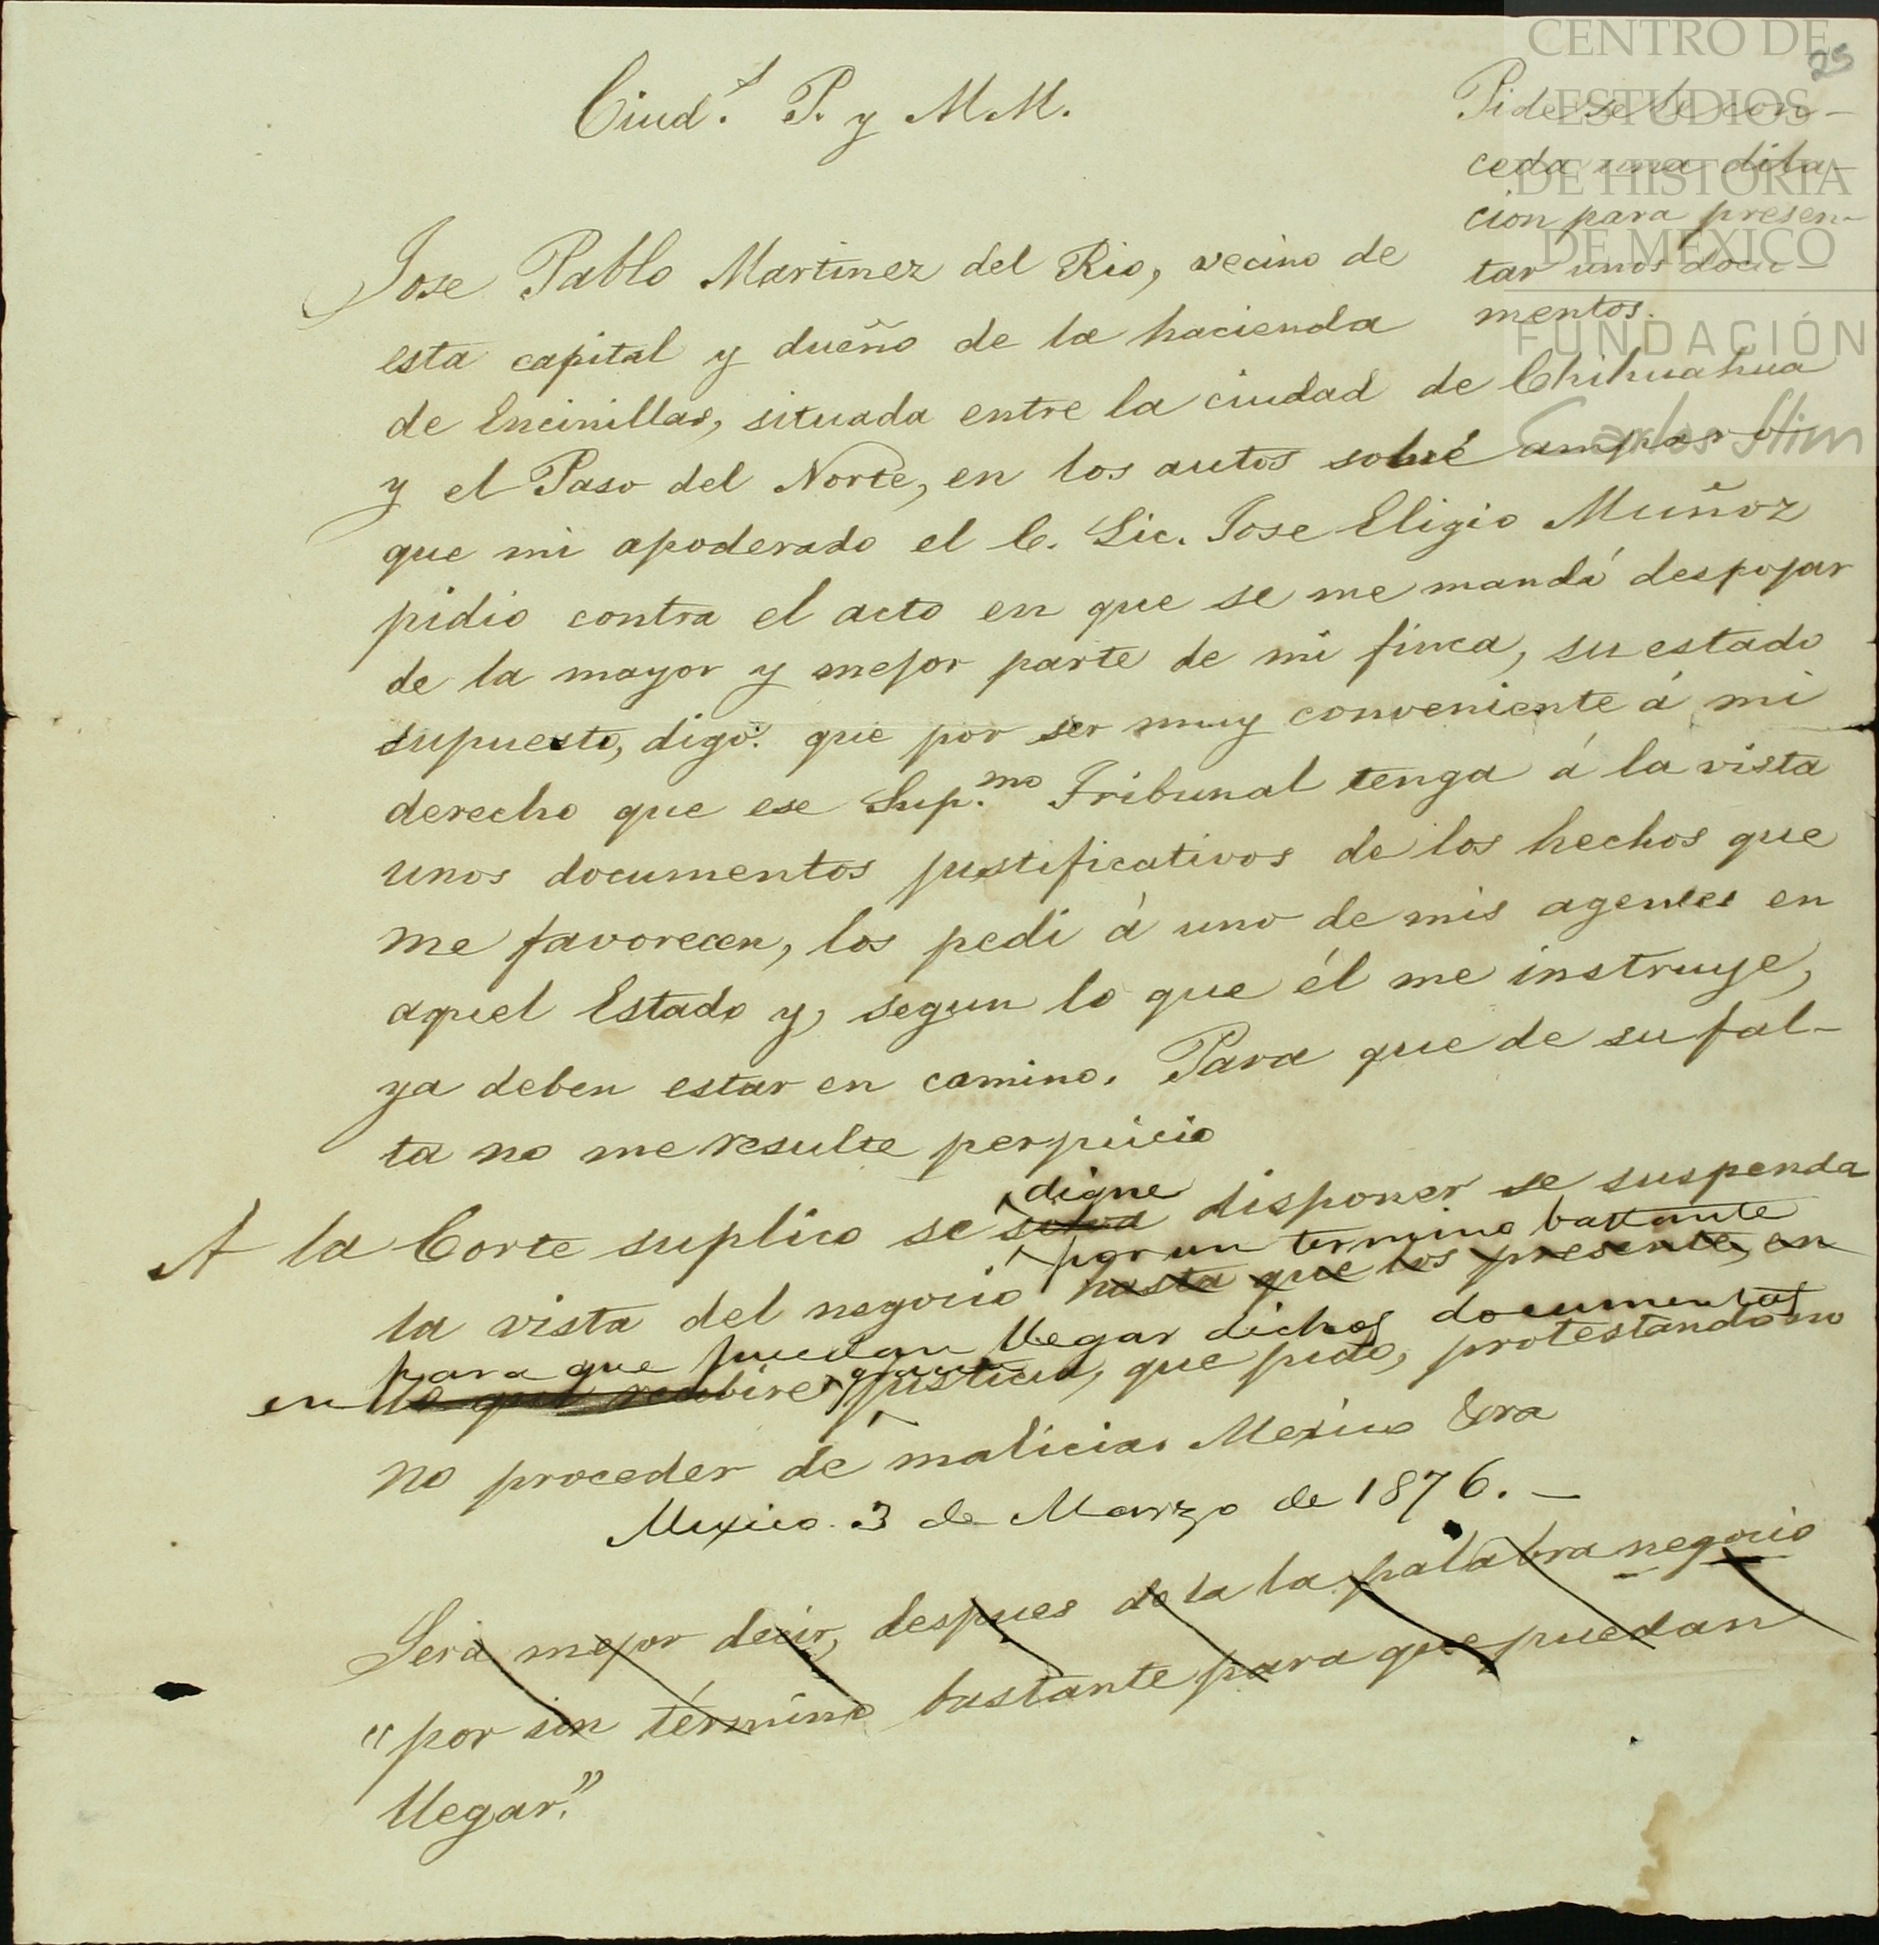 25
Ciud.s P. y M M.
Pide se le con-
ceda una dila-
cion para presen-
tar unos docu
mentos.
Jose Pablo Martinez del Rio, vecino de
esta capital y dueño de la hacienda
de Encinillas, situada entre la ciudad de Chihuahua
y el Paso del Norte, en los autos sobre amparo
que mi apoderado el C. Lic. Jose Eligio Muñoz
pidio contra el acto en que se me mandó despojar
de la mayor y mejor parte de mi finca, su estado
supuesto, digo: que por ser muy conveniente á mi
derecho que ese Sup.mo Tribunal tenga á la vista
unos documentos justificativos de los hechos que
me favorecen, los pedi á uno de mis agentes en
aquel Estado y, segun lo que él me instruye,
ya deben estar en camino. Para que de su fal-
ta no me resulte perjuicio
digne
A la Corte suplico se disponer se suspenda
por un termino bastante
la vista del negocio hasta que los presente, en
para que puedan llegar dichos documentos
en lo que recibiré justicia, que pido, protestando no
no proceder de malicia. Mexico &ra
Mexico 3 de Marzo de 1876. —
Será mejor decir, despues de la la palabra negocio
"por un término bastante para que puedan
llegar."
CENTRO DE
ESTUDIOS
DE HISTORIA
DE MEXICO
FUNDACIÓN
Carlos Slim